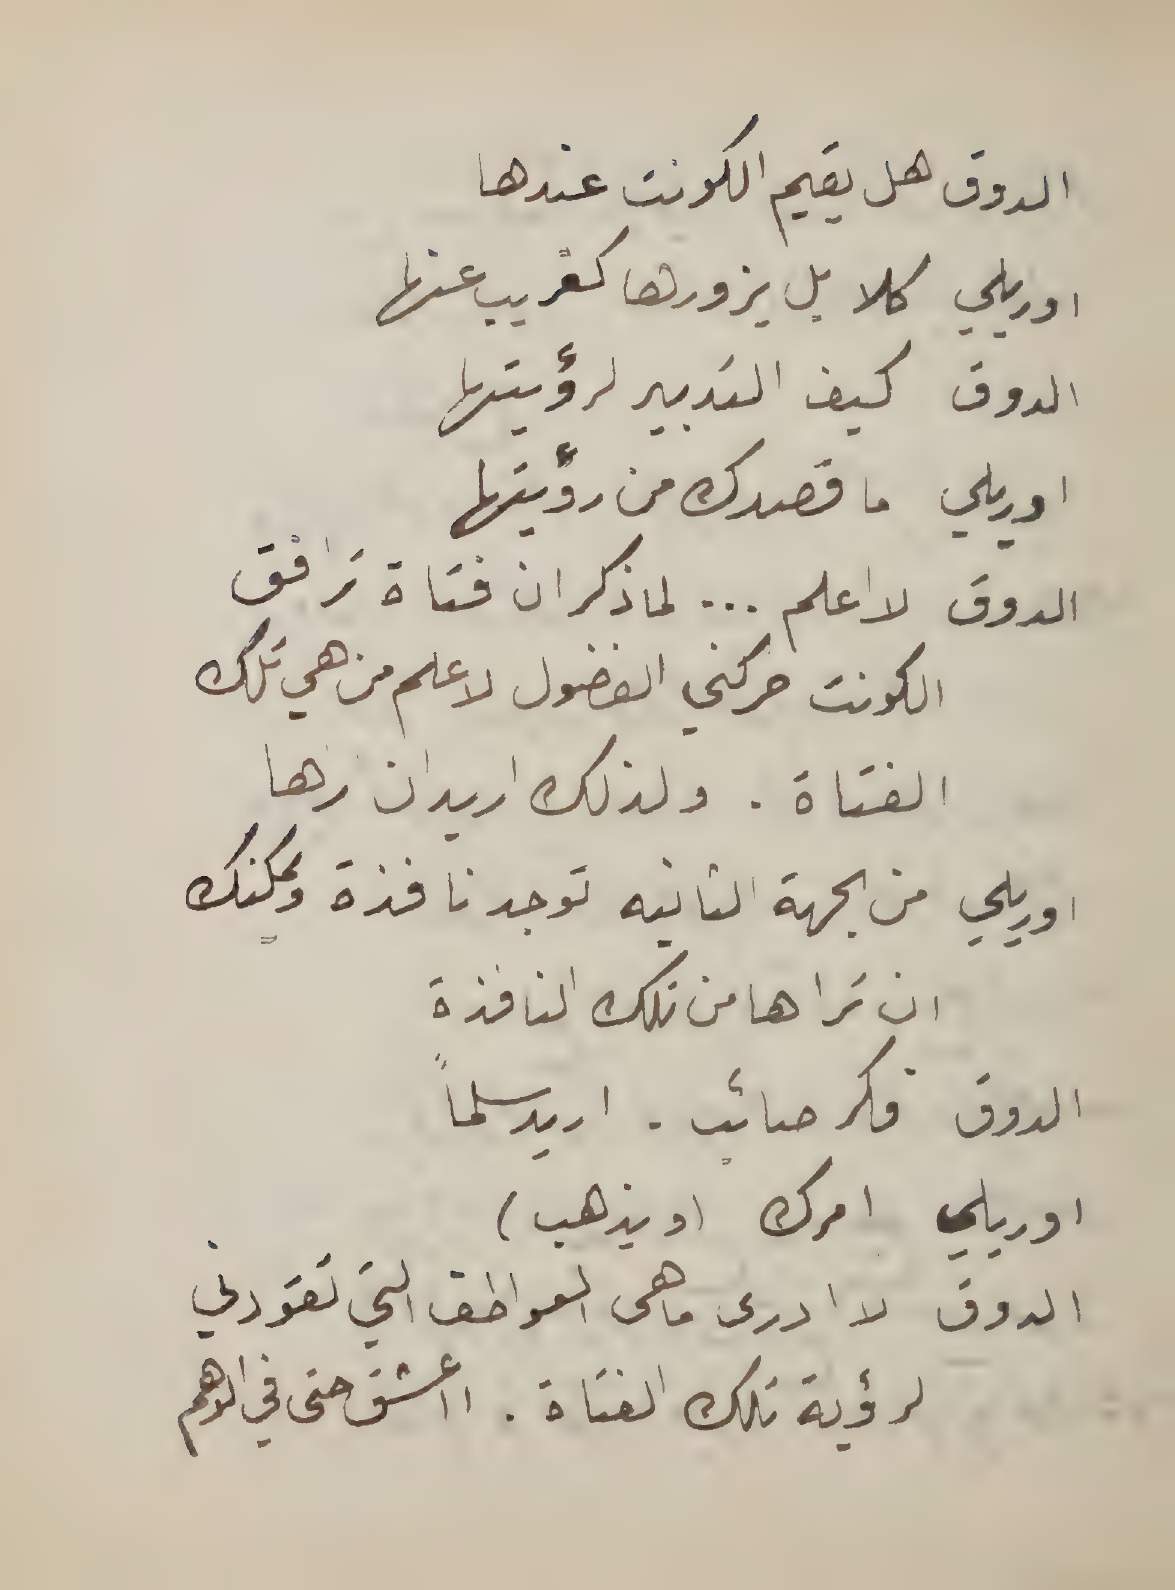 الدوق هل يقيم الكونت عندها
اوريلي كلا بل يزورها كغريب عنها
الدوق كيف التدبير لرؤيتها
اوريلي ما قصدك من رؤيتها
الدوق لا اعلم ... لما ذكر ان فتاة ترافق
الكونت حركني الفضول لاعلم من هي تلك
الفتاة . ولذلك اريد ان
اوريلي من الجهة الثانيه توجد نافذة ويمكنك
ان تراها من تلك النافذة
الدوق فكر صائب . اريد سلماً
اوريلي امرك (ويذهب)
الدوق لا ادرى ما هى العواطف التي تقودني
لرؤية تلك الفتاة . ااعشق حتى في الوهم